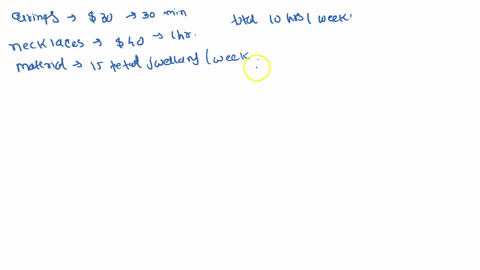 earings → $30 → 30 min total 10 hrs / week
necklaces → $40 → 1hr.
material → 15 total jwellary / week